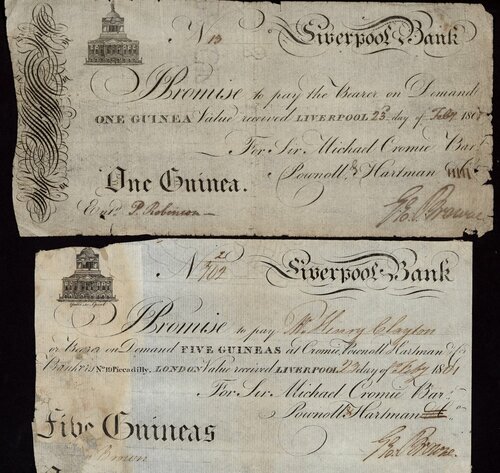 No 13 Liverpool Bank
I Promise to pay the Bearer on Demand
ONE GUINEA Value received LIVERPOOL 23d day of Feby 1801
For Sir Michael Cromie Bart
Pownoll & Hartman
One Guinea.
Entd P. Robinson
Geo. Browne
No 21/702 Liverpool Bank
I Promise to pay Mr Henry Clayton
or Bearer on Demand FIVE GUINEAS at Cromie, Pownoll & Hartman &Co
Bankrs No 19 Piccadilly, LONDON Value received LIVERPOOL 23 day of Feby 1801
For Sir Michael Cromie Bart
Pownoll & Hartman
Five Guineas
Geo. Browne